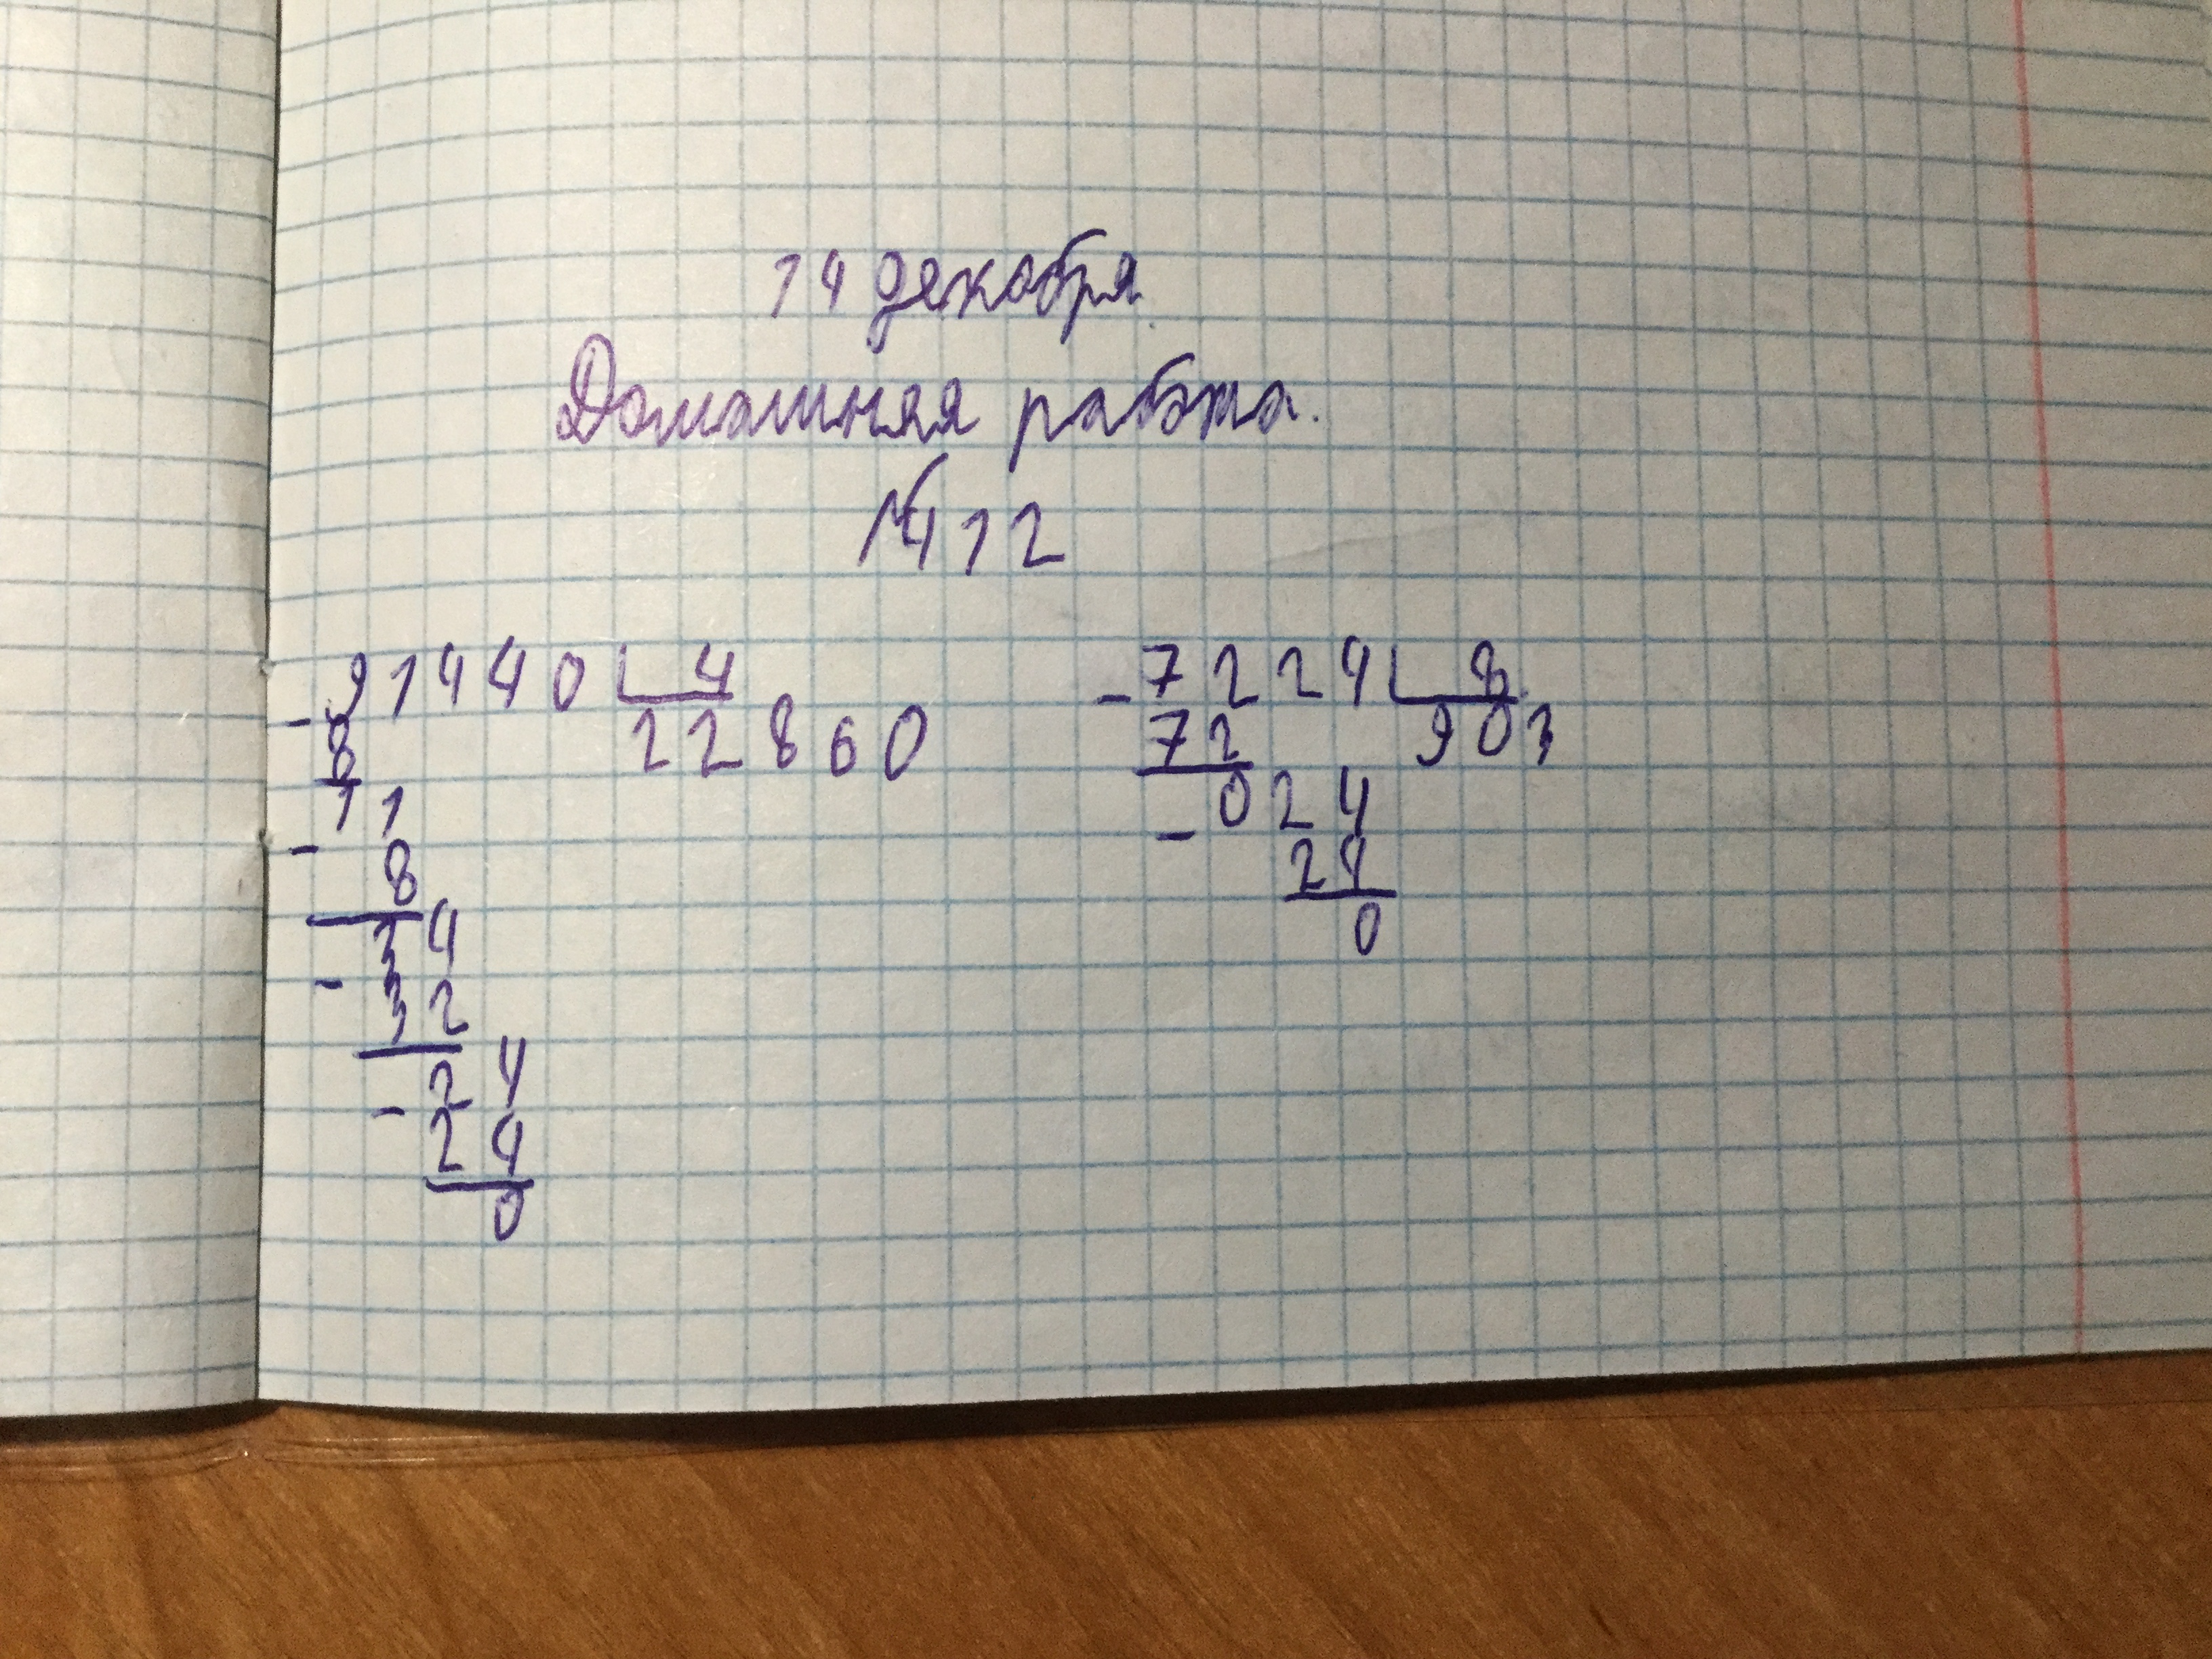 14 декабря.
Домашняя работа.
№412
91440 4
- 8 22860
11
- 8
34
- 32
24
- 24
0
- 7224 8
72 903
024
- 24
0